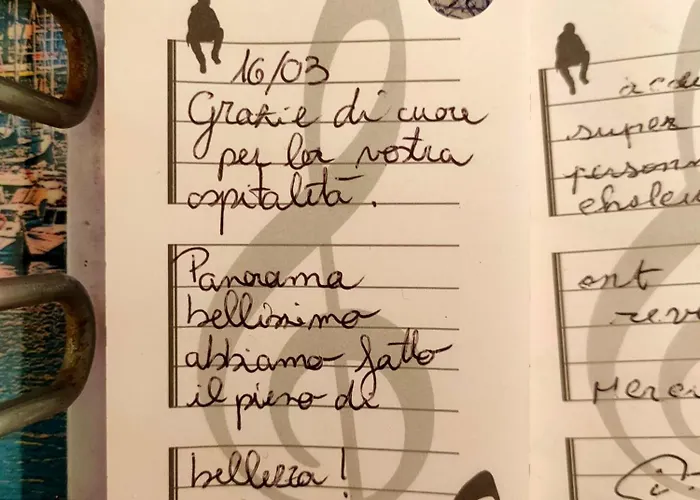 16/03
Grazie di cuore
per la vostra
ospitalità.
Panorama
bellissimo
abbiamo fatto
il pieno di
bellezza!
super
ont
Merci